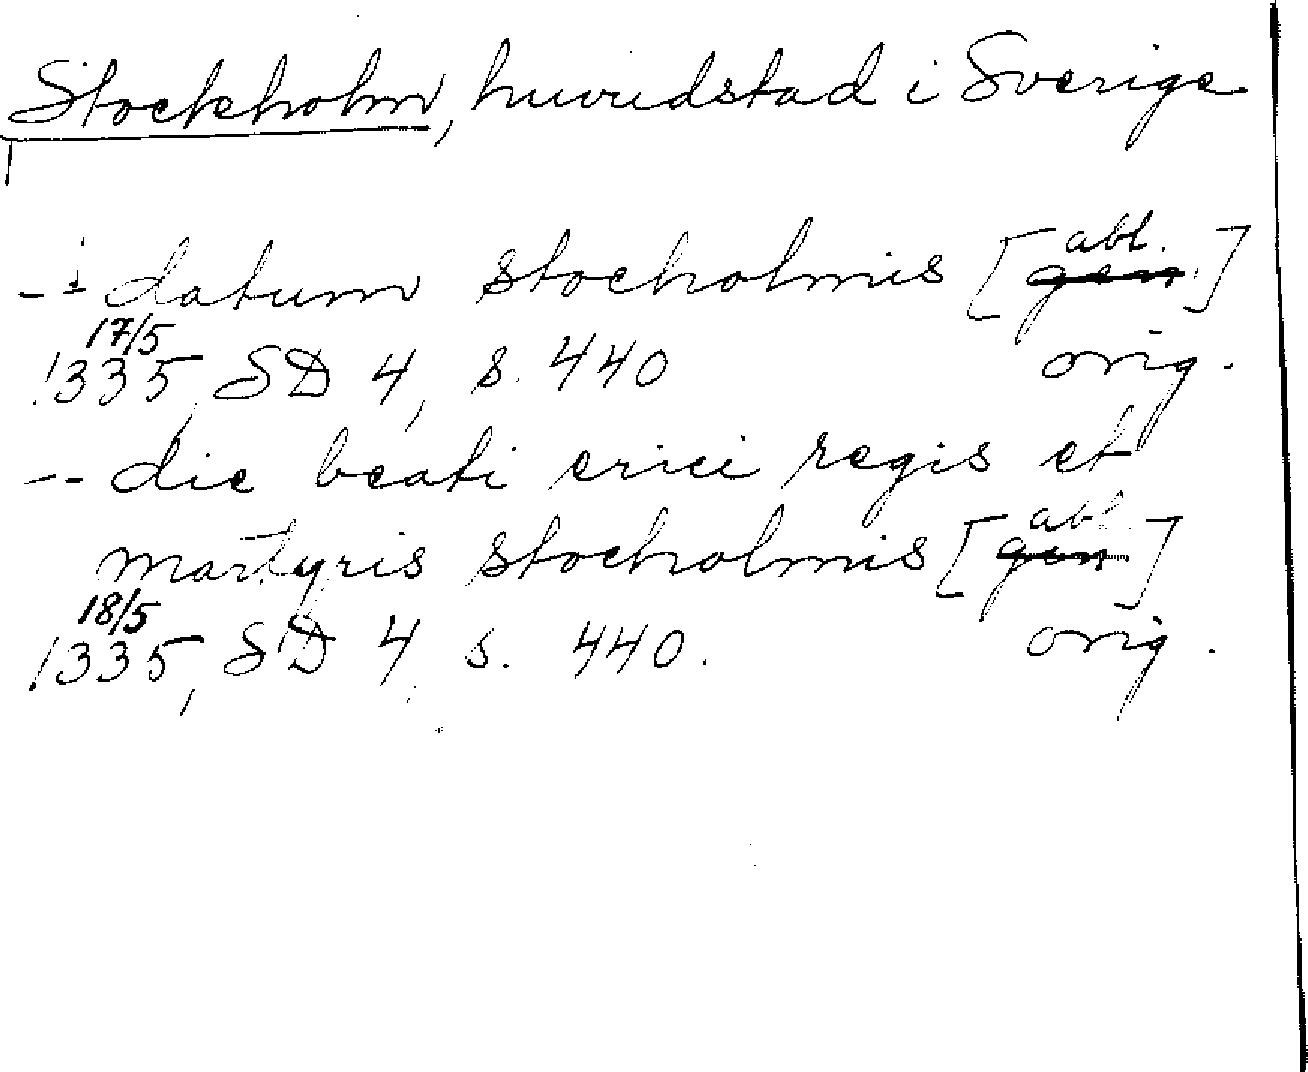 Stockholm, huvudstad i Sverige
-- datum stocholmis [abl. gen.]
17/5
1335, SD 4, s. 440 orig.
-- die beati erici regis et
martyris stocholmis [abl. gen]
18/5
1335, SD 4, s. 440. orig.